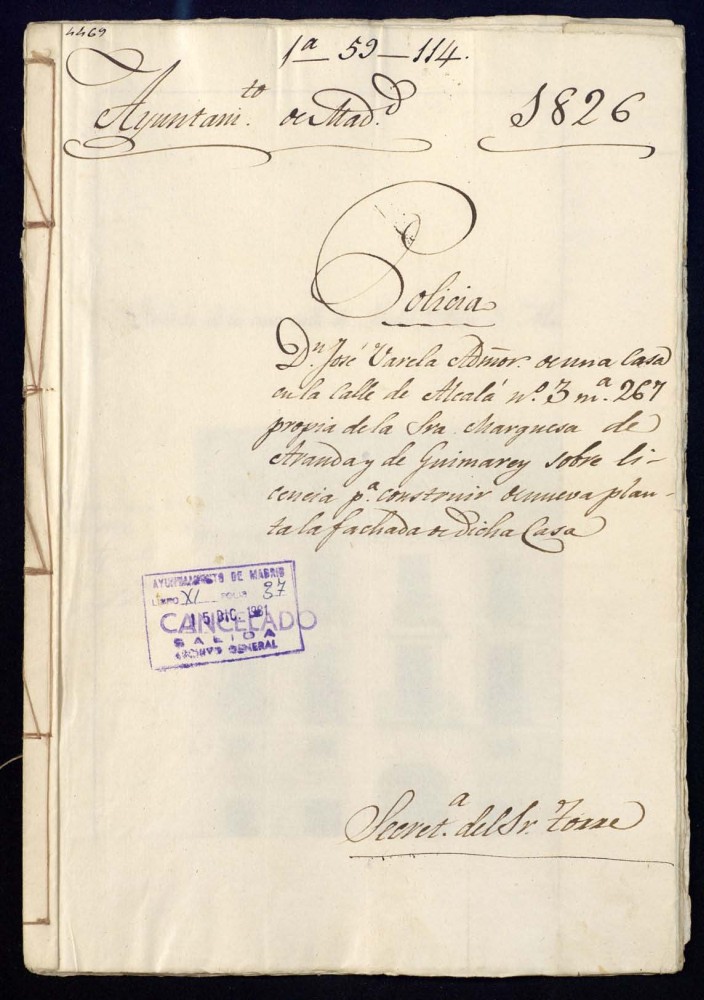 4469
1ª 59-114.
Ayuntam.to de Mad.d 1826
Policia
Dn José Varela Admor. de una Casa
en la Calle de Alcalá nº. 3 mª. 267
propia de la Sra. Marquesa de
Aranda y de Guimarey sobre li-
cencia pª. construir de nueva plan-
ta la fachada de dicha Casa
AYUNTAMIENTO DE MADRID
LIBRO XI FOLIO 37
15 DIC. 1981
CANCELADO
SALIDA
ARCHIVO GENERAL
Secret.ª del Sr. Torre